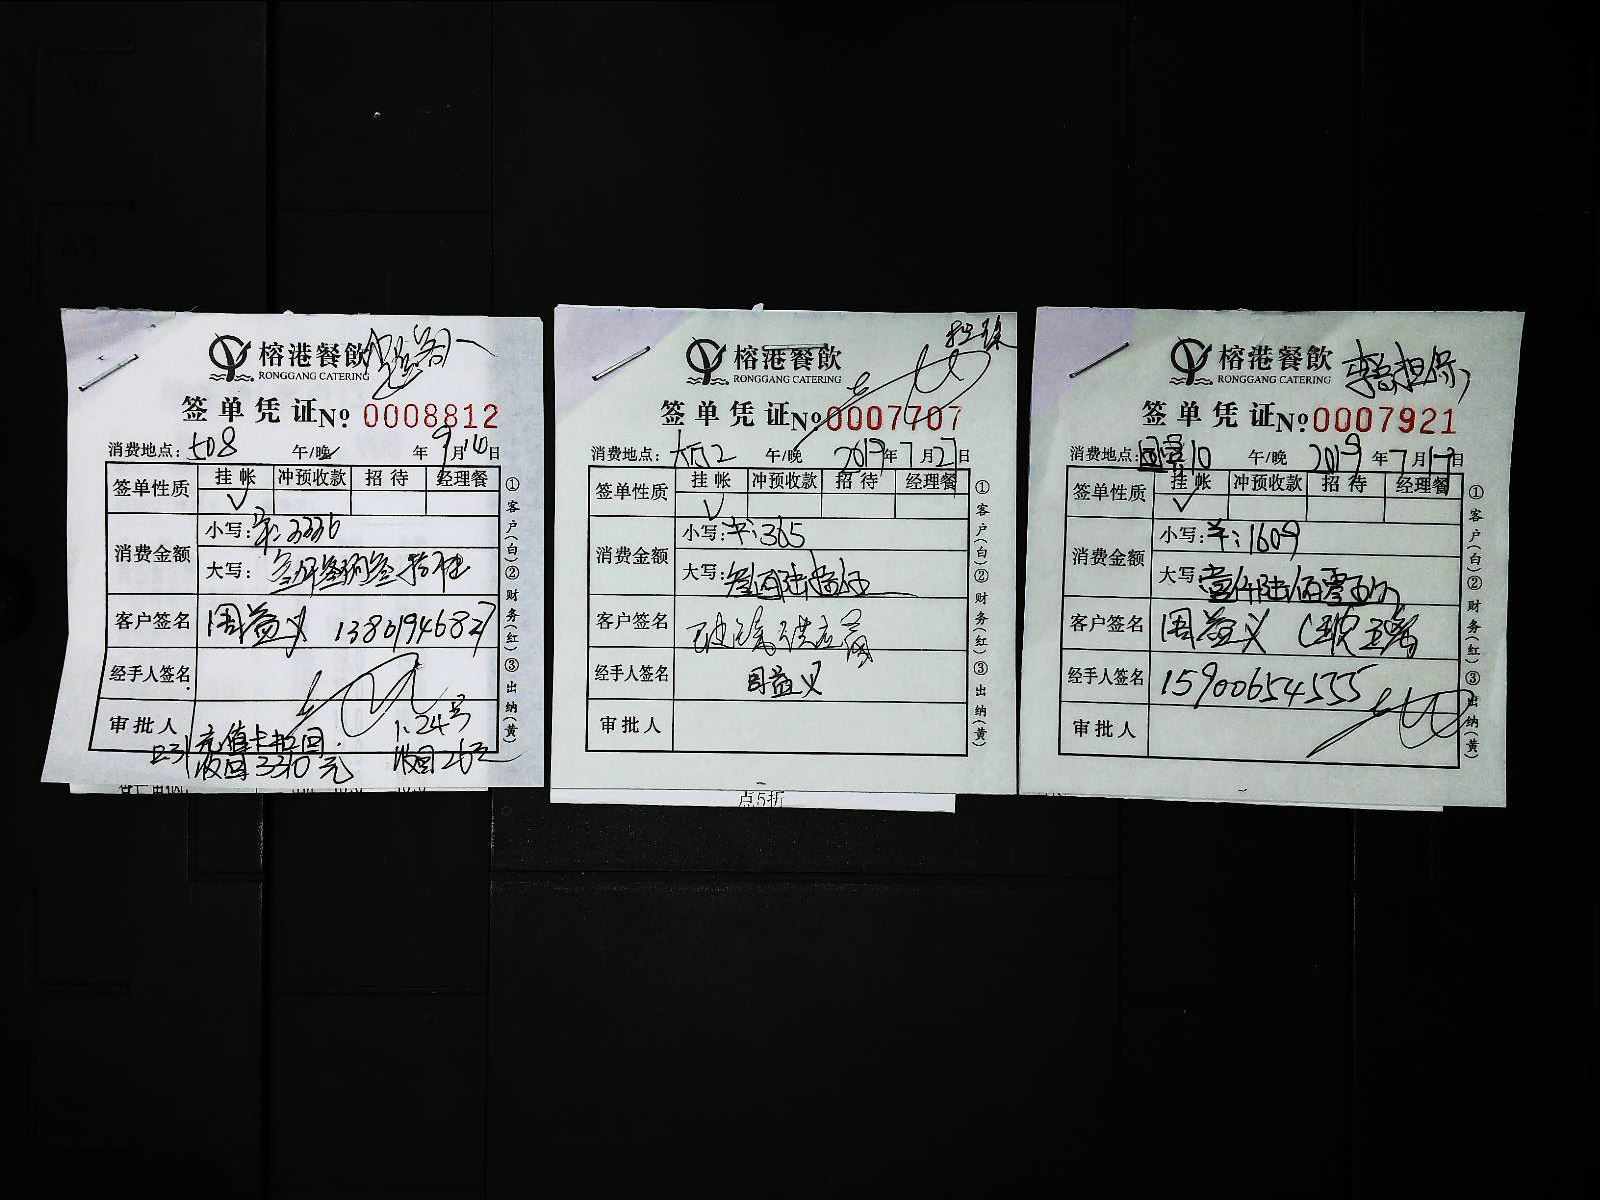 榕港餐飲
RONGGANG CATERING
签单凭证 No 0008812
消费地点: 508 午/晚 年 9月10日
签单性质 挂帐 冲预收款 招待 经理餐
✓
消费金额 小写: ￥:3336
大写: 叁仟叁佰叁拾陆
客户签名 周益义 13801946827
经手人签名
审批人 1.24号
充值卡 收回3310元 收回26元
①客户(白)②财务(红)③出纳(黄)
榕港餐飲
RONGGANG CATERING
签单凭证 No 0007707
消费地点: 大厅2 午/晚 2019年7月27日
签单性质 挂帐 冲预收款 招待 经理餐
✓
消费金额 小写: ￥:365
大写: 叁佰陆拾伍
客户签名
经手人签名 周益义
审批人
①客户(白)②财务(红)③出纳(黄)
点5折
榕港餐飲 担保
RONGGANG CATERING
签单凭证 No 0007921
消费地点: 10 午/晚 2019年7月17日
签单性质 挂帐 冲预收款 招待 经理餐
✓
消费金额 小写: ￥:1609
大写 壹仟陆佰零玖
客户签名 周益义
经手人签名 15900654555
审批人
①客户(白)②财务(红)③出纳(黄)